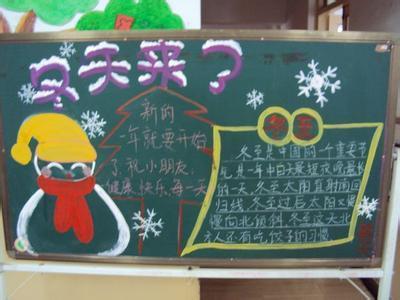 冬天来了
新的
一年就要开始
了,祝小朋友,
健康、快乐、每一天
冬至
冬至是中国的一个重要节
气,是一年中白天最短夜晚最长
的一天,冬至太阳直射南回
归线,冬至过后太阳又慢
慢向北倾斜,冬至这天北
方人还有吃饺子的习惯